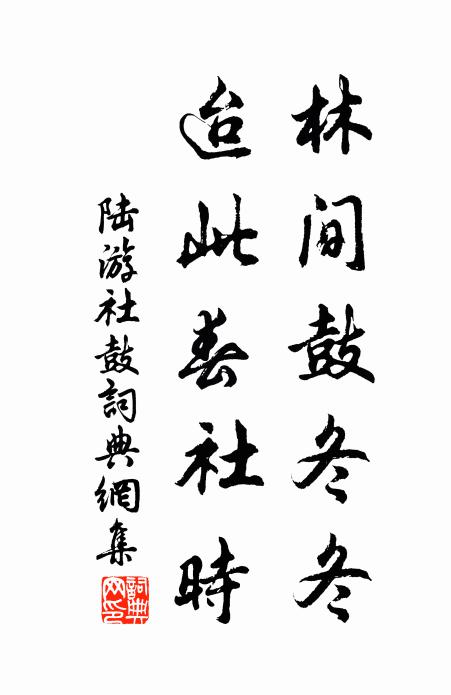 林间鼓冬冬
迨此春社時
陆游社鼓詞典網集
詞典网印